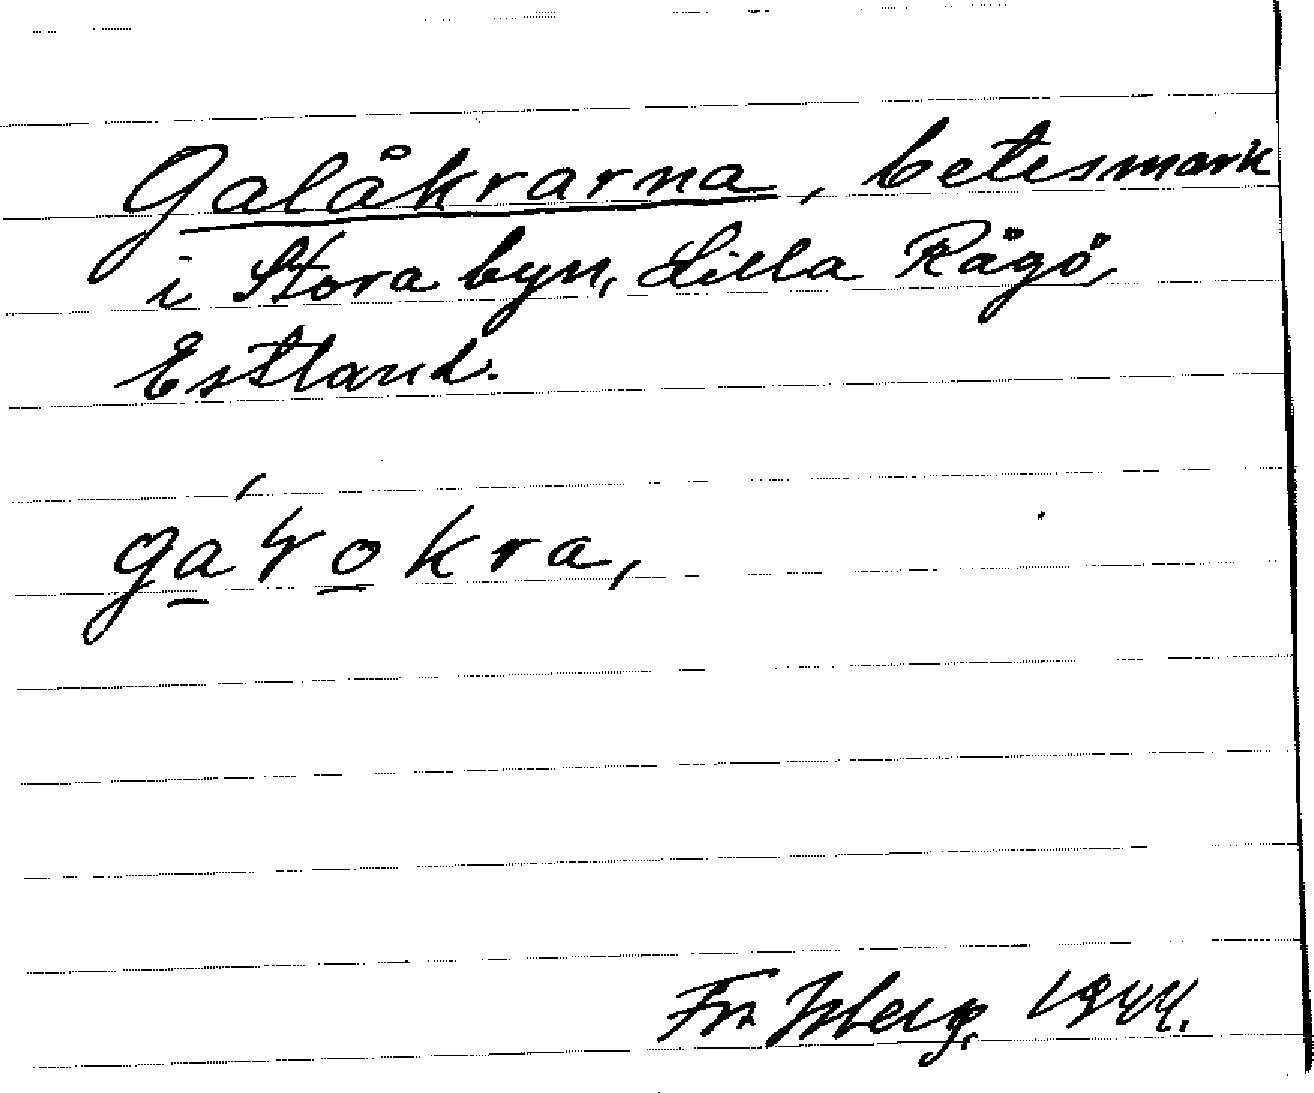 Galåkrarna, betesmark
i Stora byn, Lilla Rågö,
Estland.
okra,
Fr. Isberg. 1944.